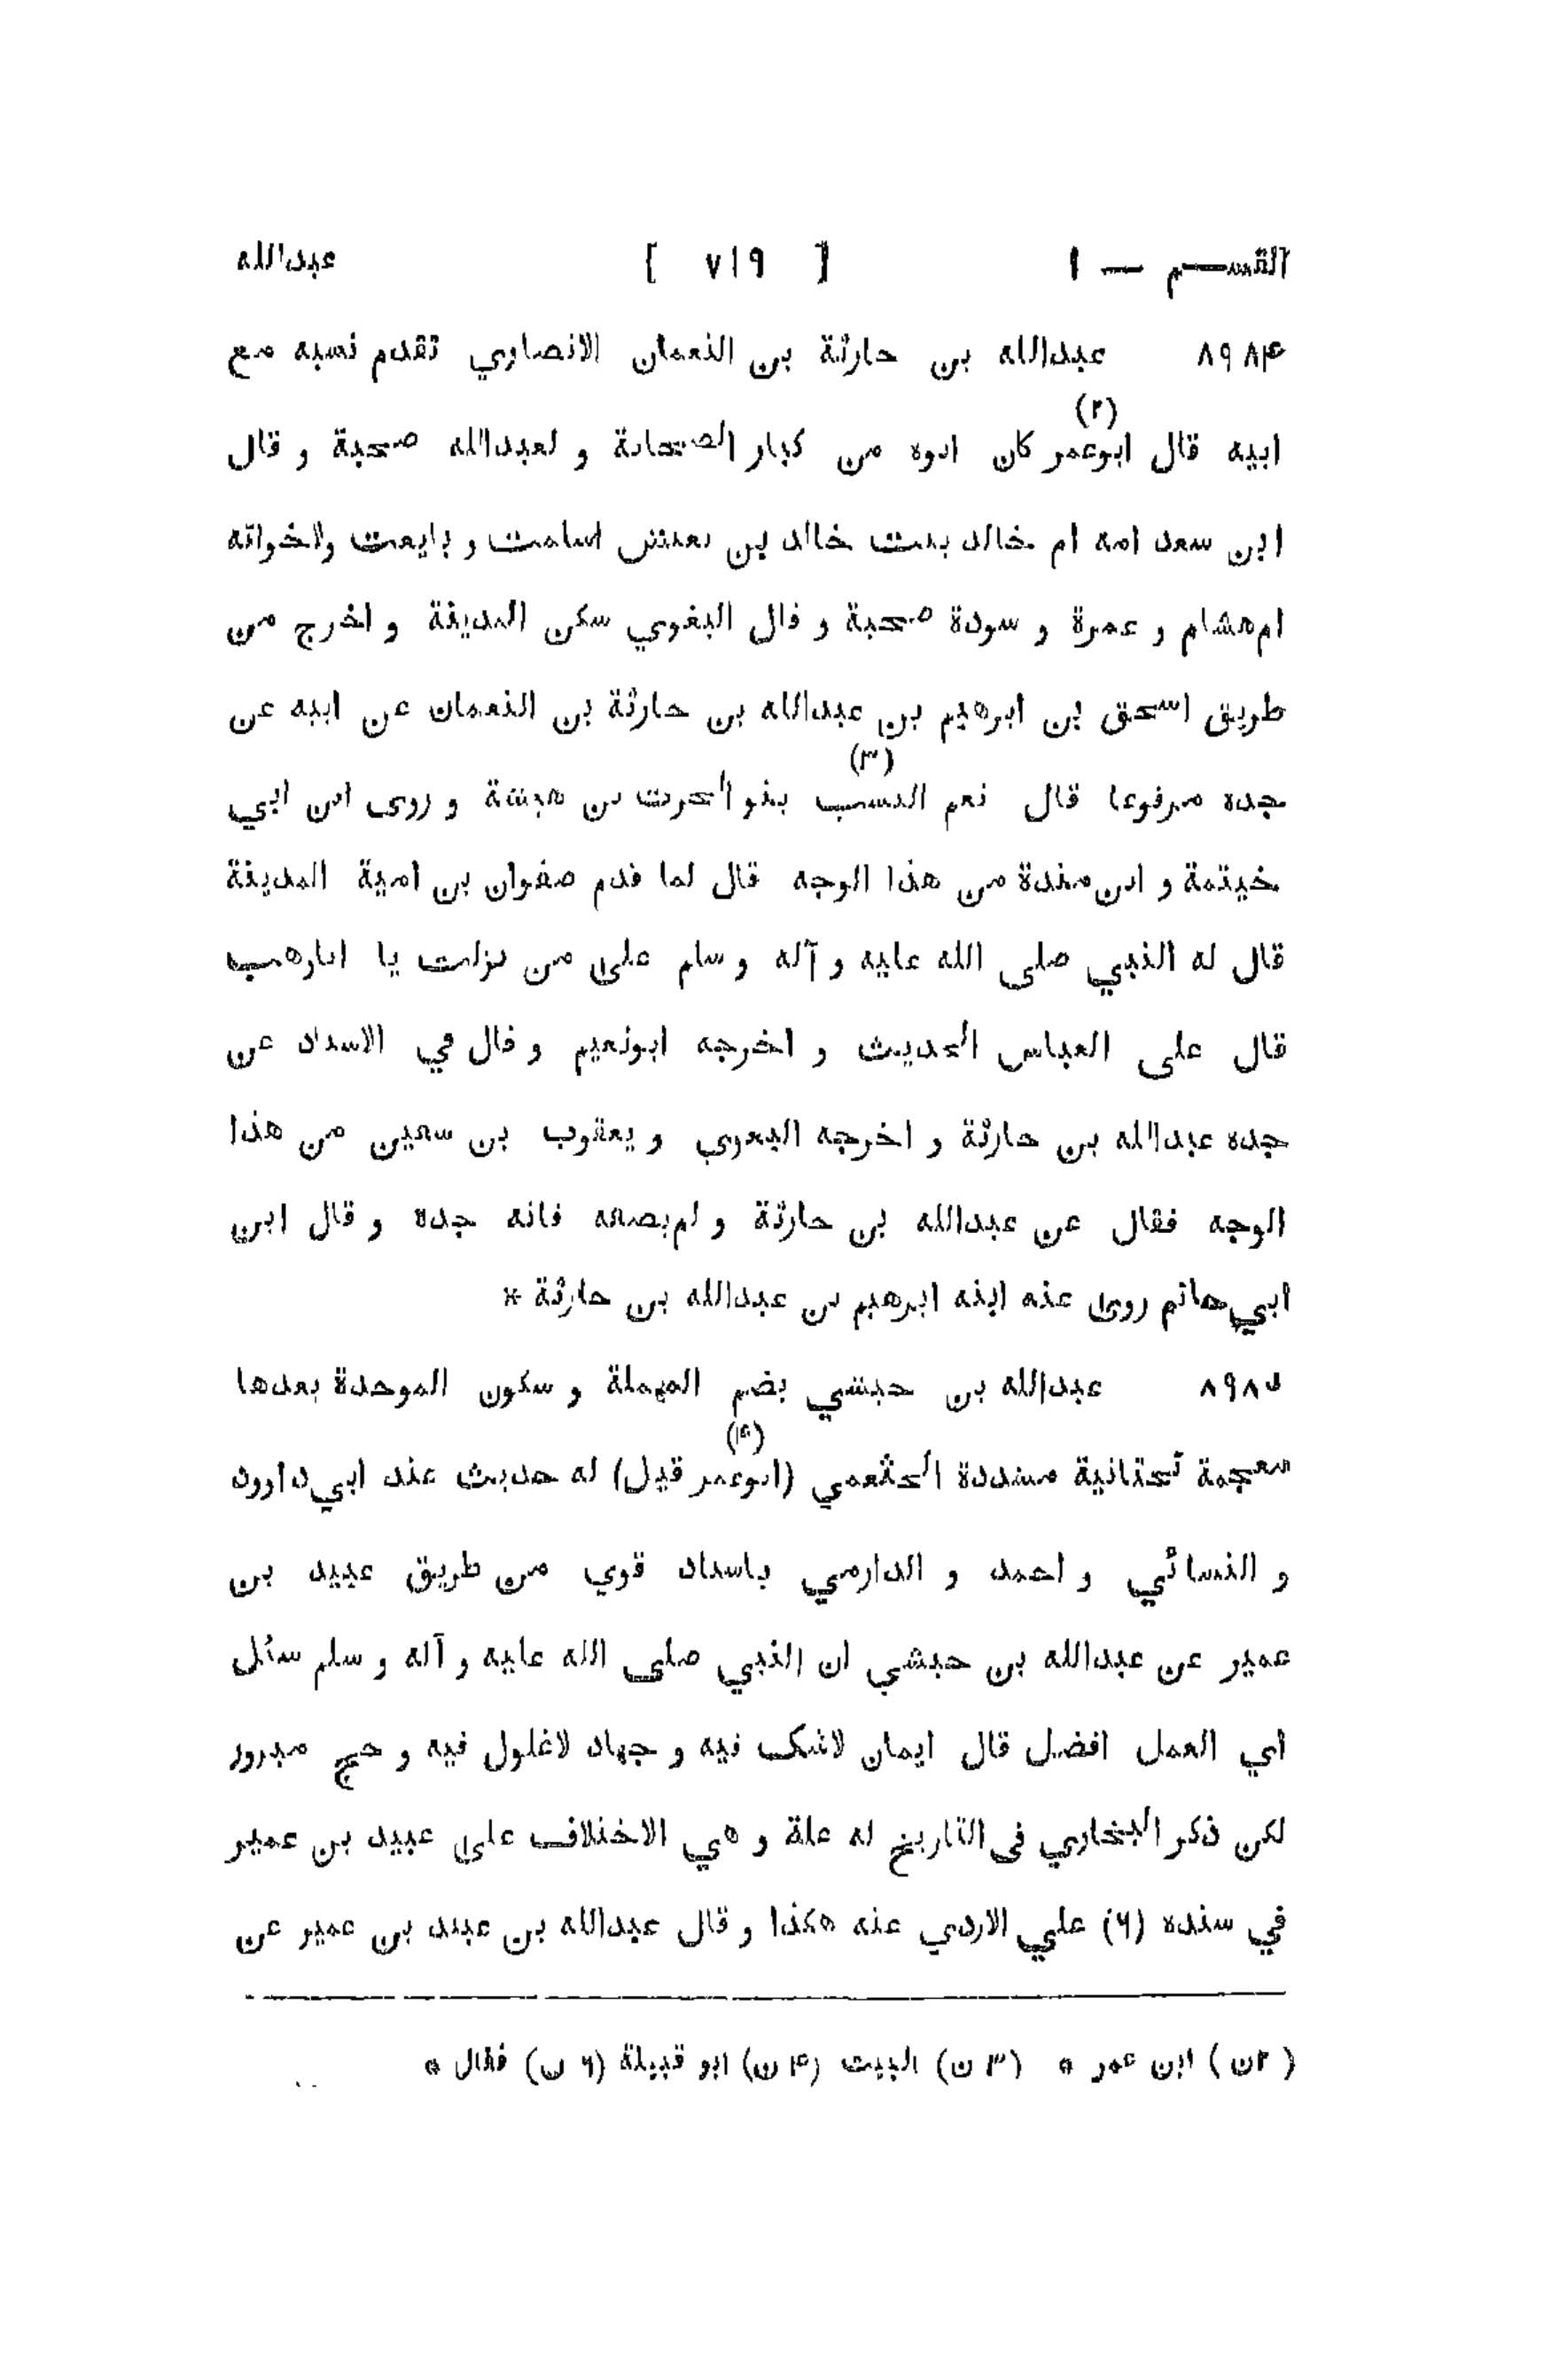 القسم — ١ [ ٧١٩ ] عبدالله
٨٩٨۴ عبدالله بن حارثة بن النعمان الانصاري تقدم نسبه مع
ابيه قال ابوعمر (٢) كان ابوه من كبار الصحابة و لعبدالله صحبة و قال
ابن سعد امه ام خالد بنت خالد بن يعيش اسلمت و بايعت ولاخواته
ام هشام و عمرة و سودة صحبة و قال البغوي سكن المدينة و اخرج من
طريق اسحق بن ابرهيم بن عبدالله بن حارثة بن النعمان عن ابيه عن
جده مرفوعا قال نعم النسب (٣) بنو الحرث بن هيشة و روى ابن ابي
خيثمة و ابن مندة من هذا الوجه قال لما قدم صفوان بن امية المدينة
قال له النبي صلى الله عليه و آله و سلم على من نزلت يا اباوهب
قال على العباس الحديث و اخرجه ابونعيم و قال في الاسناد عن
جده عبدالله بن حارثة و اخرجه البغوي و يعقوب بن سفين من هذا
الوجه فقال عن عبدالله بن حارثة و لم يصفه فانه جده و قال ابن
ابي حاتم روى عنه ابنه ابرهيم بن عبدالله بن حارثة *
٨٩٨۵ عبدالله بن حبشي بضم المهملة و سكون الموحدة بعدها
معجمة تحتانية مشددة الخثعمي (ابوعمر قيل) (۴) له حديث عند ابي داوود
و النسائي و احمد و الدارمي باسناد قوي من طريق عبيد بن
عمير عن عبدالله بن حبشي ان النبي صلى الله عليه و آله و سلم سئل
اي العمل افضل قال ايمان لاشك فيه و جهاد لاغلول فيه و حج مبرور
لكن ذكر البخاري فى التاريخ له علة و هي الاختلاف على عبيد بن عمير
في سنده (۶) علي الازدي عنه هكذا و قال عبدالله بن عبيد بن عمير عن
( ٢ن ) ابن عمر * (٣ ن) البيت (۴ ن) ابو قبيلة (۶ ن) فقال *